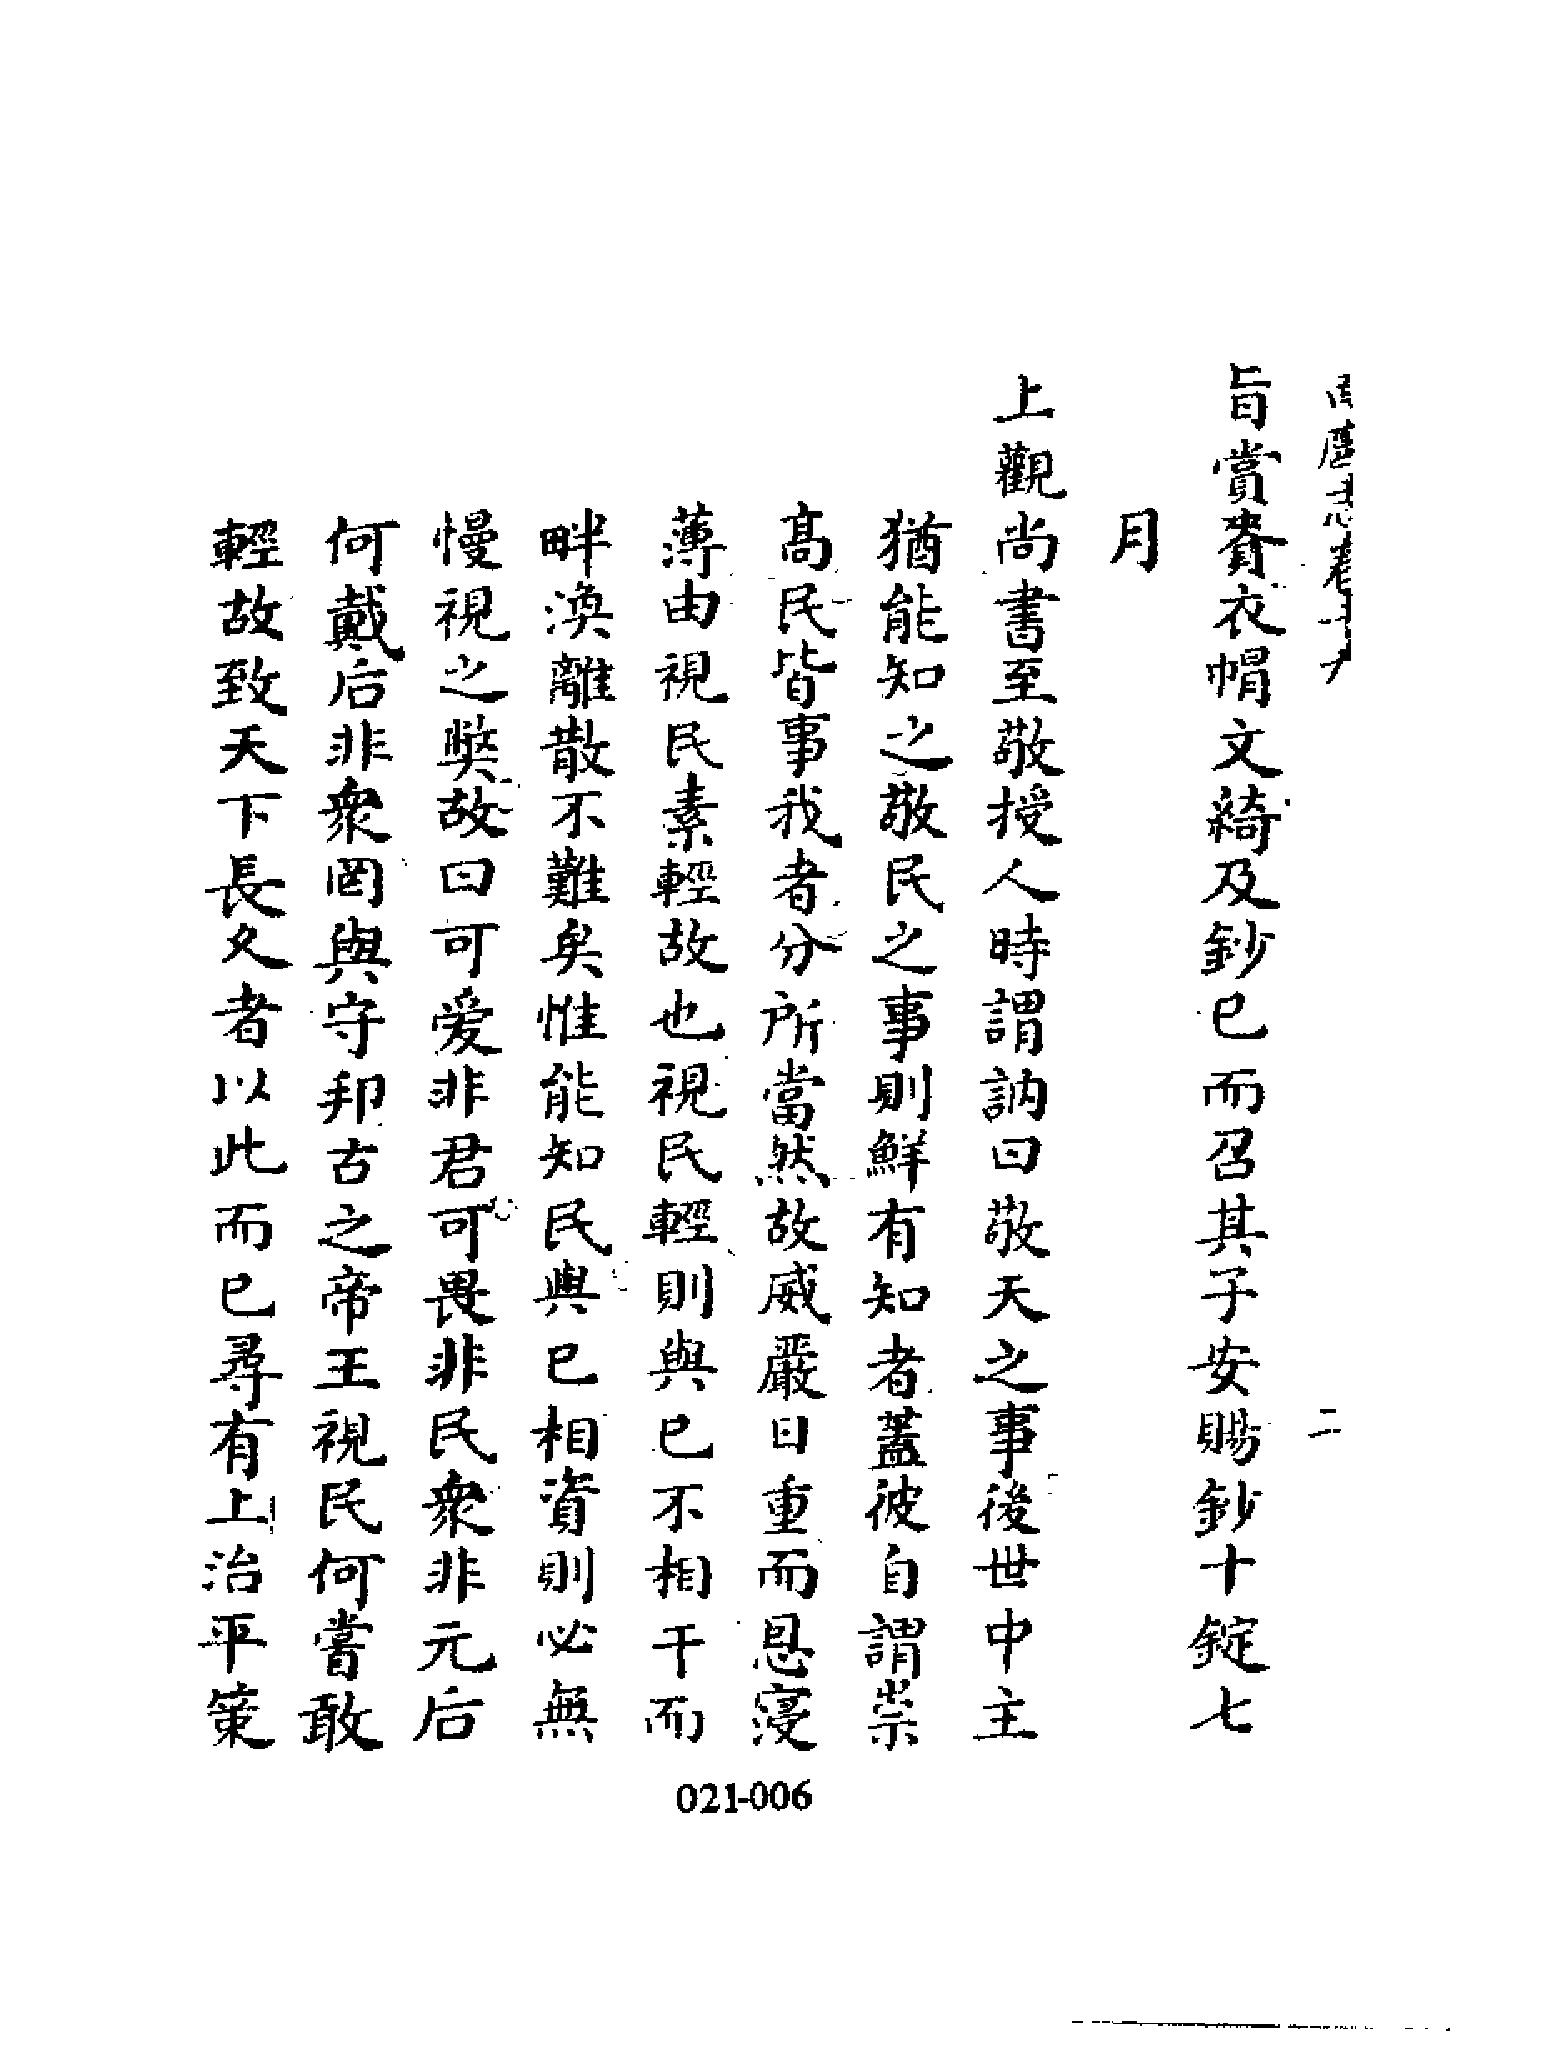 二
旨賞賚衣帽文綺及鈔已而召其子安賜鈔十錠七
月
上觀尚書至敬授人時謂訥曰敬天之事後世中主
猶能知之敬民之事則鮮有知者蓋彼自謂崇
高民皆事我者分所當然故威嚴日重而恩寖
薄由視民素輕故也視民輕則與已不相干而
畔渙離散不難矣惟能知民與已相資則必無
慢視之弊故曰可愛非君可畏非民衆非元后
何戴后非衆罔與守邦古之帝王視民何嘗敢
輕故致天下長久者以此而已尋有上治平策
021-006